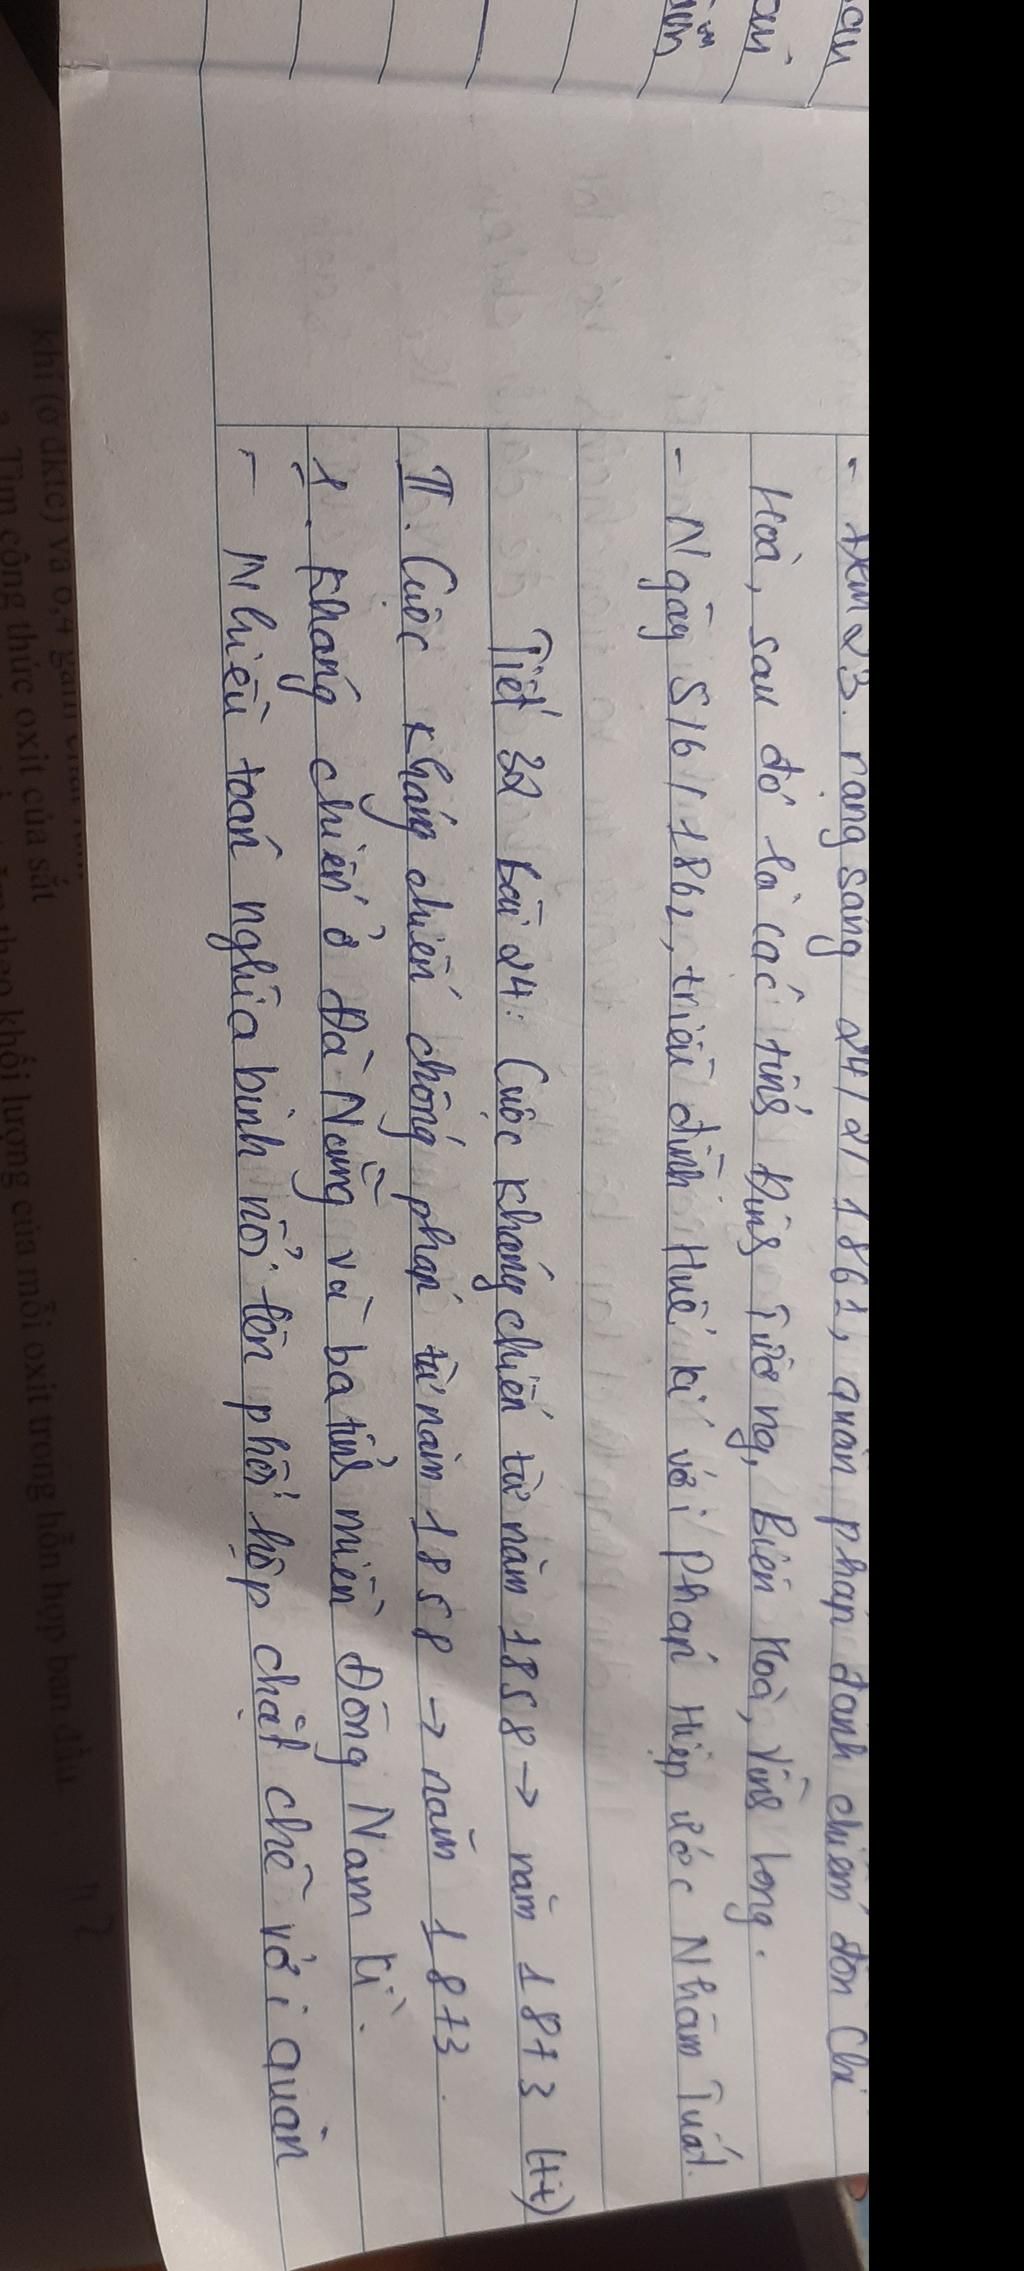 - Đêm 23. rạng sáng 24/2/1861, quân pháp đánh chiếm đồn Chí
Hoà, sau đó là các tỉnh Định Tường, Biên Hoà, Vĩnh Long.
- Ngày 5/6/1862, triều đình Huế kí với Pháp Hiệp ước Nhâm Tuất.
Tiết 32 bài 24: Cuộc kháng chiến từ năm 1858 → năm 1873 (tt)
II. Cuộc kháng chiến chống pháp từ năm 1858 → năm 1873.
1. kháng chiến ở Đà Nẵng và ba tỉnh miền Đông Nam Kì.
- Nhiều toán nghĩa binh nổi lên phối hợp chặt chẽ với quân
khí (ở đktc) và 0,4 gam
Tìm công thức oxit của sắt
theo khối lượng của mỗi oxit trong hỗn hợp ban đầu